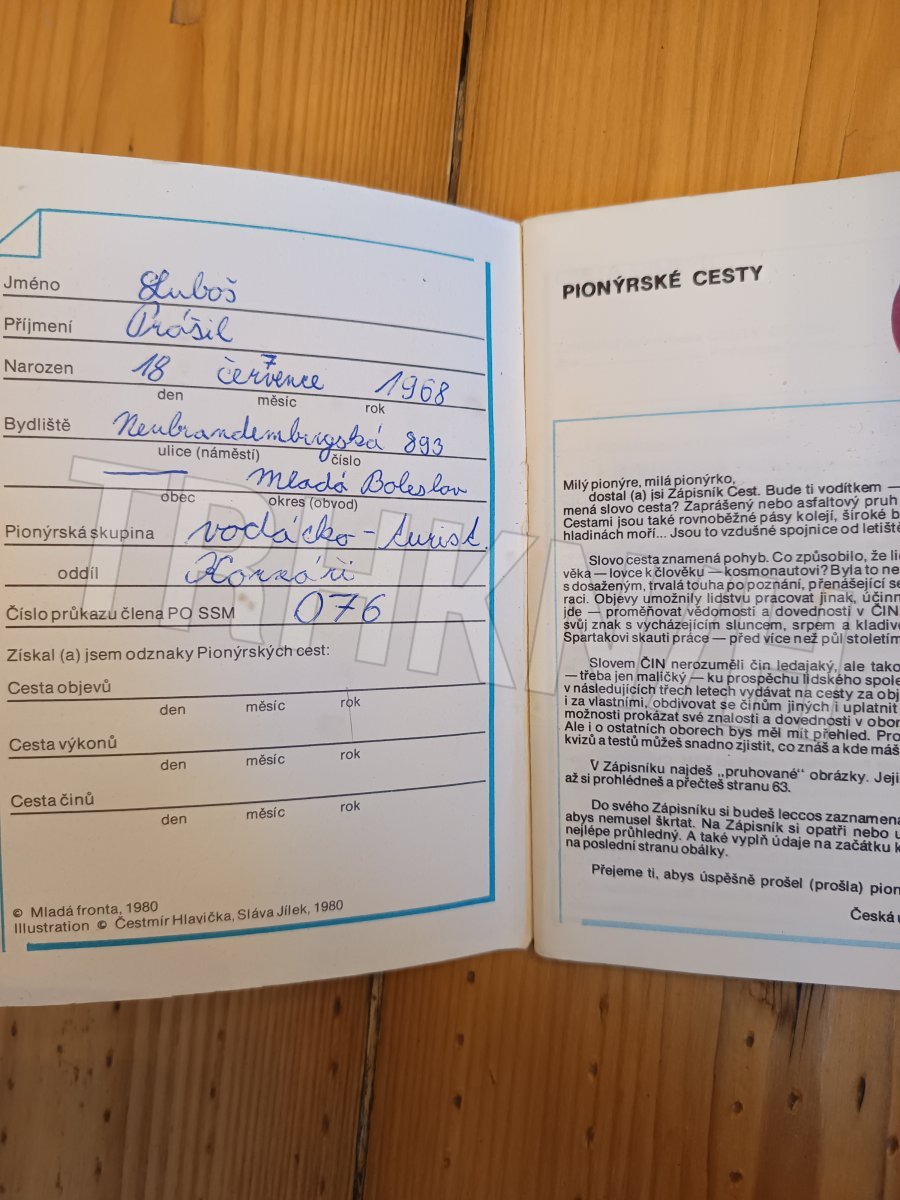 Jméno Luboš
Příjmení Prášil
Narozen 18 července 7 1968
den měsíc rok
Bydliště Neubrandemburgská 893
ulice (náměstí) číslo
Mladá Boleslav
obec okres (obvod)
Pionýrská skupina vodácko-turist.
oddíl Korzáři
Číslo průkazu člena PO SSM 076
Získal (a) jsem odznaky Pionýrských cest:
Cesta objevů
den měsíc rok
Cesta výkonů
den měsíc rok
Cesta činů
den měsíc rok
© Mladá fronta, 1980
Illustration © Čestmír Hlavička, Sláva Jílek, 1980
PIONÝRSKÉ CESTY
Milý pionýre, milá pionýrko,
dostal (a) jsi Zápisník Cest. Bude ti vodítkem —
mená slovo cesta? Zaprášený nebo asfaltový pruh
Cestami jsou také rovnoběžné pásy kolejí, široké b
hladinách moří... Jsou to vzdušné spojnice od letiště
Slovo cesta znamená pohyb. Co způsobilo, že li
věka — lovce k člověku — kosmonautovi? Byla to ne
s dosaženým, trvalá touha po poznání, přenášející se
raci. Objevy umožnily lidstvu pracovat jinak, účinn
jde — proměňovat vědomosti a dovednosti v ČIN
svůj znak s vycházejícím sluncem, srpem a kladive
Spartakovi skauti práce — před více než půl stoletím
Slovem ČIN nerozuměli čin ledajaký, ale tako
— třeba jen maličký — ku prospěchu lidského spole
v následujících třech letech vydávat na cesty za obj
i za vlastními, obdivovat se činům jiných i uplatnit
možnosti prokázat své znalosti a dovednosti v obor
Ale i o ostatních oborech bys měl mít přehled. Pro
kvizů a testů můžeš snadno zjistit, co znáš a kde máš
V Zápisníku najdeš „pruhované“ obrázky. Jeji
až si prohlédneš a přečteš stranu 63.
Do svého Zápisníku si budeš leccos zaznamená
abys nemusel škrtat. Na Zápisník si opatři nebo u
nejlépe průhledný. A také vyplň údaje na začátku k
na poslední stranu obálky.
Přejeme ti, abys úspěšně prošel (prošla) pion
Česká
TRHKNIH